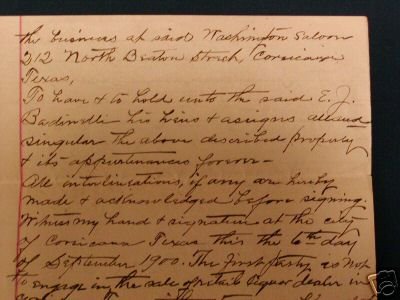 the business at said Washington Saloon
212 North Beaton Street, Corsicana
Texas,
To have & to hold unto the said E. J.
his heirs & assigns all and
singular the above described property
& its appurtenances forever —
All interlineations, if any are hereby
made & acknowledged before signing.
Witness my hand & signature at the city
of Corsicana Texas this the 6th day
of September 1900. The first party is not
to engage in the sale of retail liquor dealer in